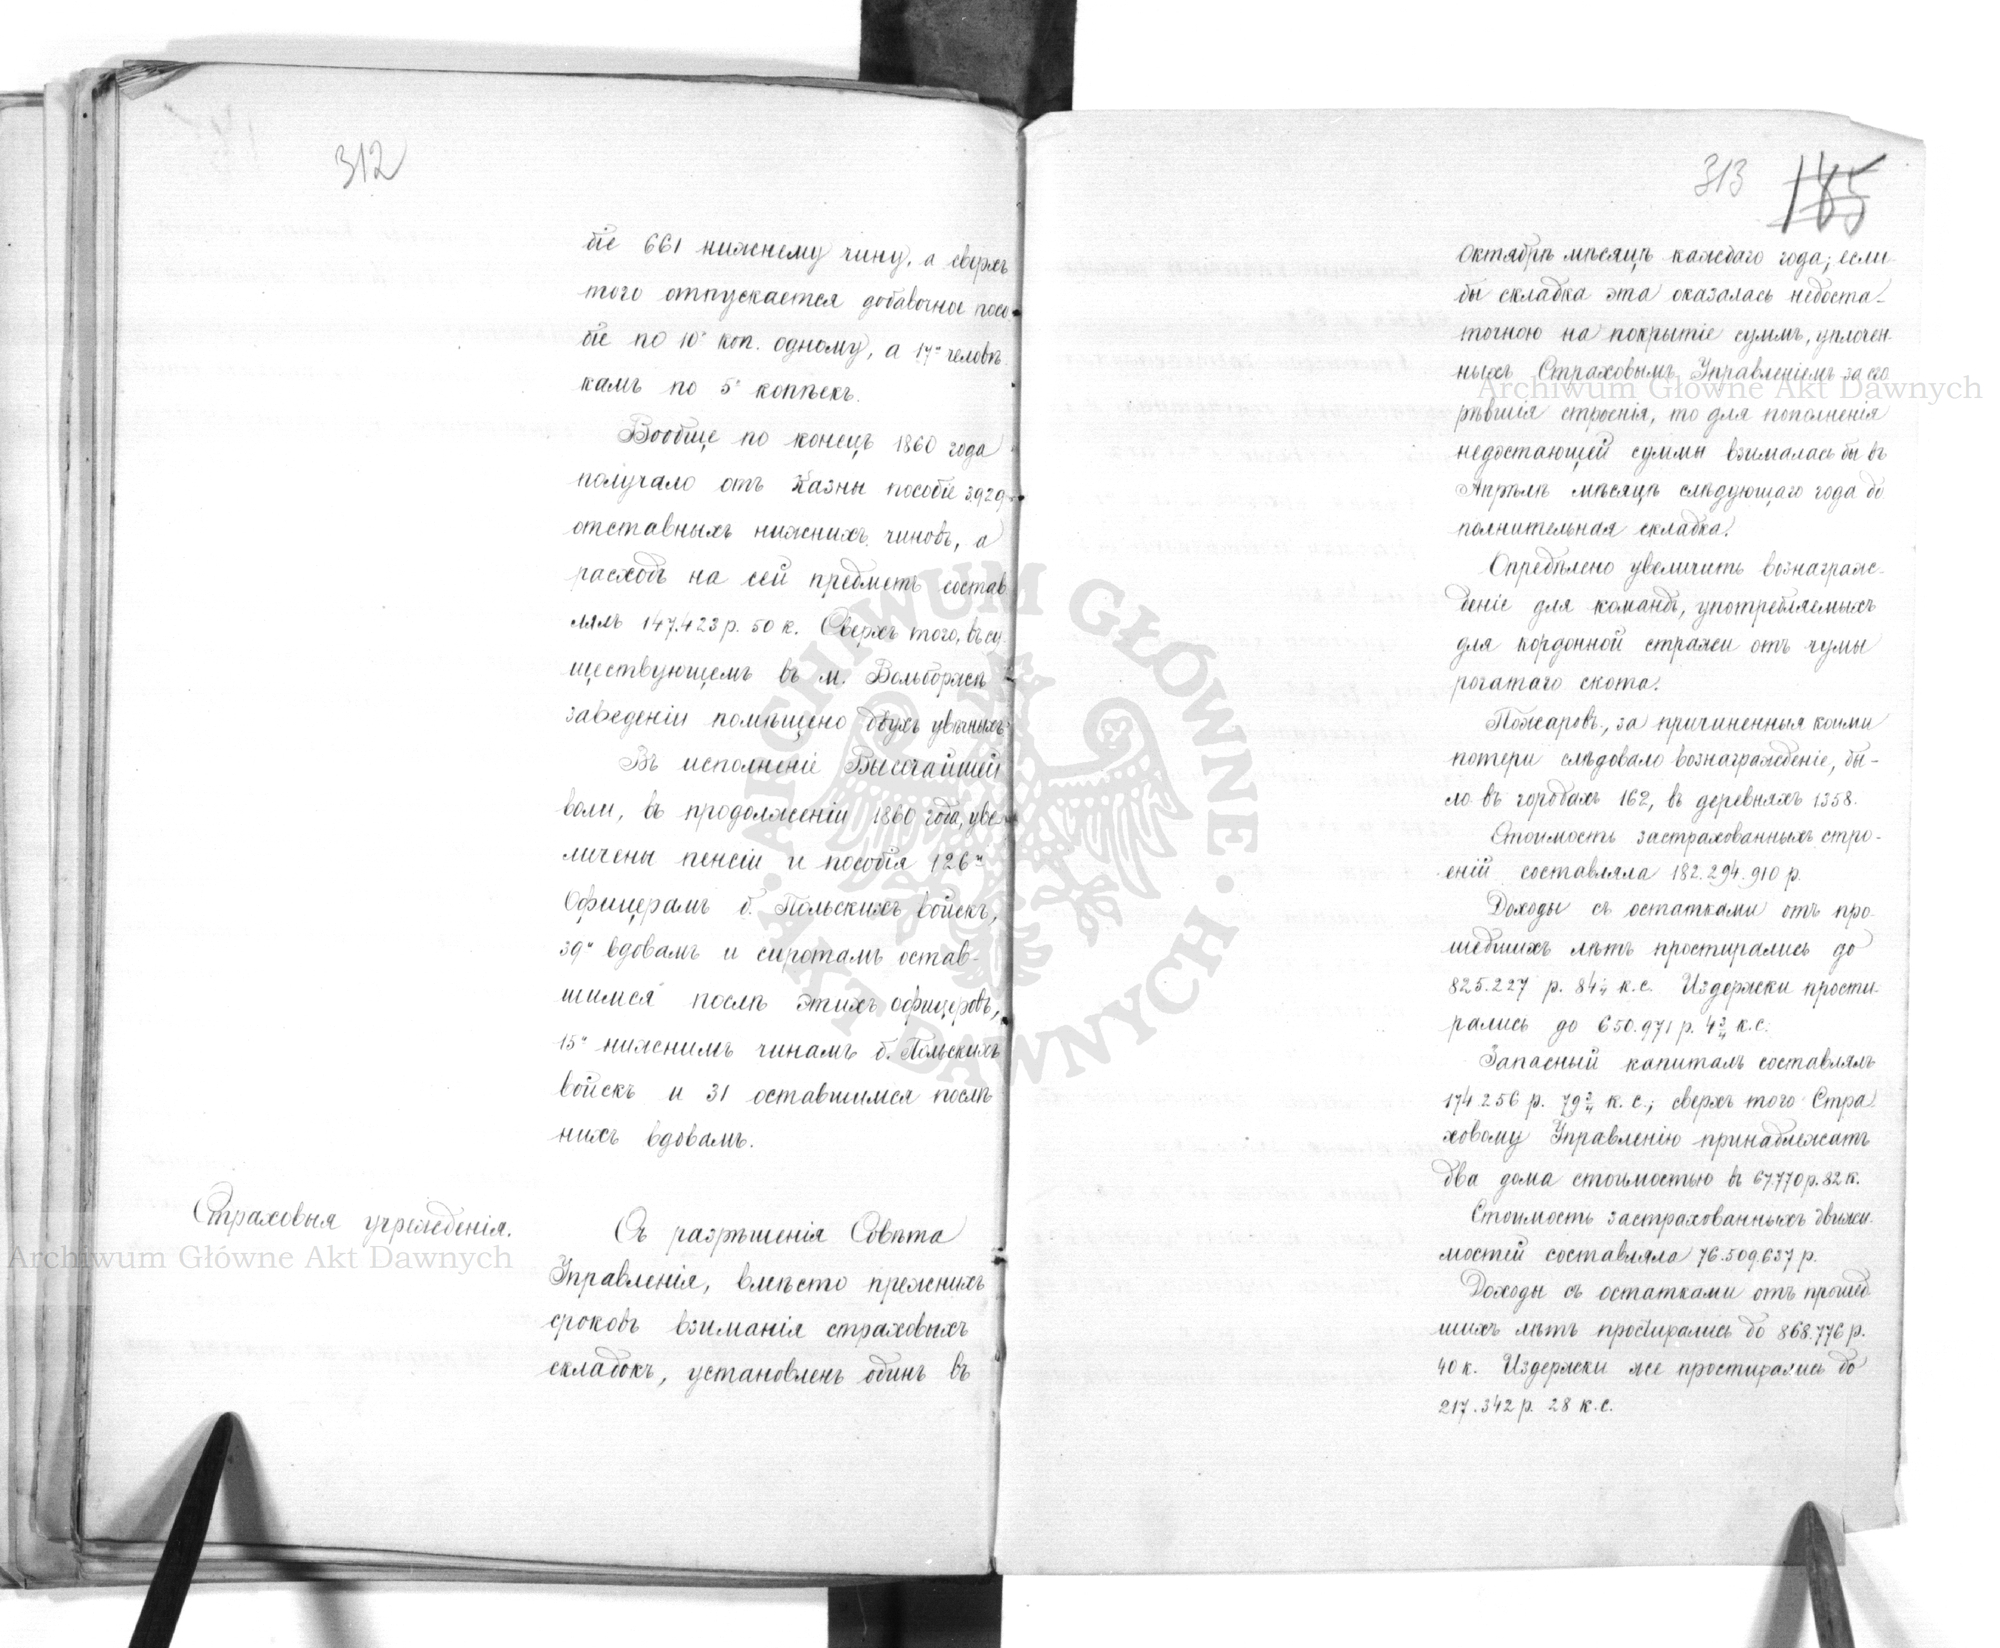 312
біе 661 нижнему чину, а сверхъ
того отпускается добавочное посо-
біе по 10и коп. одному, а 17и человѣ-
камъ по 5и копѣекъ.
Вообще по конецъ 1860 года
получало отъ Казны пособіе 3929
отставныхъ нижнихъ чиновъ, а
расходъ на сей предметъ состав
лялъ 147.423 р. 50 к. Сверхъ того, въ су-
ществующемъ въ м. Вольборжѣ
заведеніи помѣщено двухъ увѣчныхъ
Въ исполненіе Высочайшей
воли, въ продолженіи 1860 года, уве
личены пенсіи и пособія 126и
Офицерамъ б. Польскихъ войскъ,
39и вдовамъ и сиротамъ остав-
шимся послѣ этихъ офицеровъ,
15и нижнимъ чинамъ б. Польскихъ
войскъ и 31 оставшимся послѣ
нихъ вдовамъ.
Страховыя учрежденія.
Съ разрѣшенія Совѣта
Управленія, вмѣсто прежнихъ
сроковъ взиманія страховыхъ
складокъ, установленъ одинъ въ
313 185
Октябрѣ мѣсяцѣ каждаго года; если
бы складка эта оказалась недоста-
точною на покрытіе суммъ, уплочен-
ныхъ Страховымъ Управленіемъ за сго
рѣвшія строенія, то для пополненія
недостающей суммы взималась бы въ
Апрѣлѣ мѣсяцѣ слѣдующаго года до
полнительная складка.
Опредѣлено увеличить вознаграж-
деніе для командъ, употребляемыхъ
для кордонной стражи отъ чумы
рогатаго скота.
Пожаровъ, за причиненныя коими
потери слѣдовало вознагражденіе, бы-
ло въ городахъ 162, въ деревняхъ 1358.
Стоимость застрахованныхъ стро-
еній составляла 182.294.910 р.
Доходы съ остатками отъ про-
шедшихъ лѣтъ простирались до
825.227 р. 84¼ к. с. Издержки прости-
рались до 650.971 р. 4¾ к. с.
Запасный капиталъ составлялъ
174.256 р. 79¾ к. с.; сверхъ того Стра
ховому Управленію принадлежатъ
два дома стоимостью въ 67.770 р. 82 к.
Стоимость застрахованныхъ движи-
мостей составляла 76.509.637 р.
Доходы съ остатками отъ прошед
шихъ лѣтъ простирались до 868.776 р.
40 к. Издержки же простирались до
217.342 р. 28 к. с.
Archiwum Główne Akt Dawnych
Archiwum Główne Akt Dawnych
ARCHIWUM GŁÓWNE · AKT DAWNYCH ·